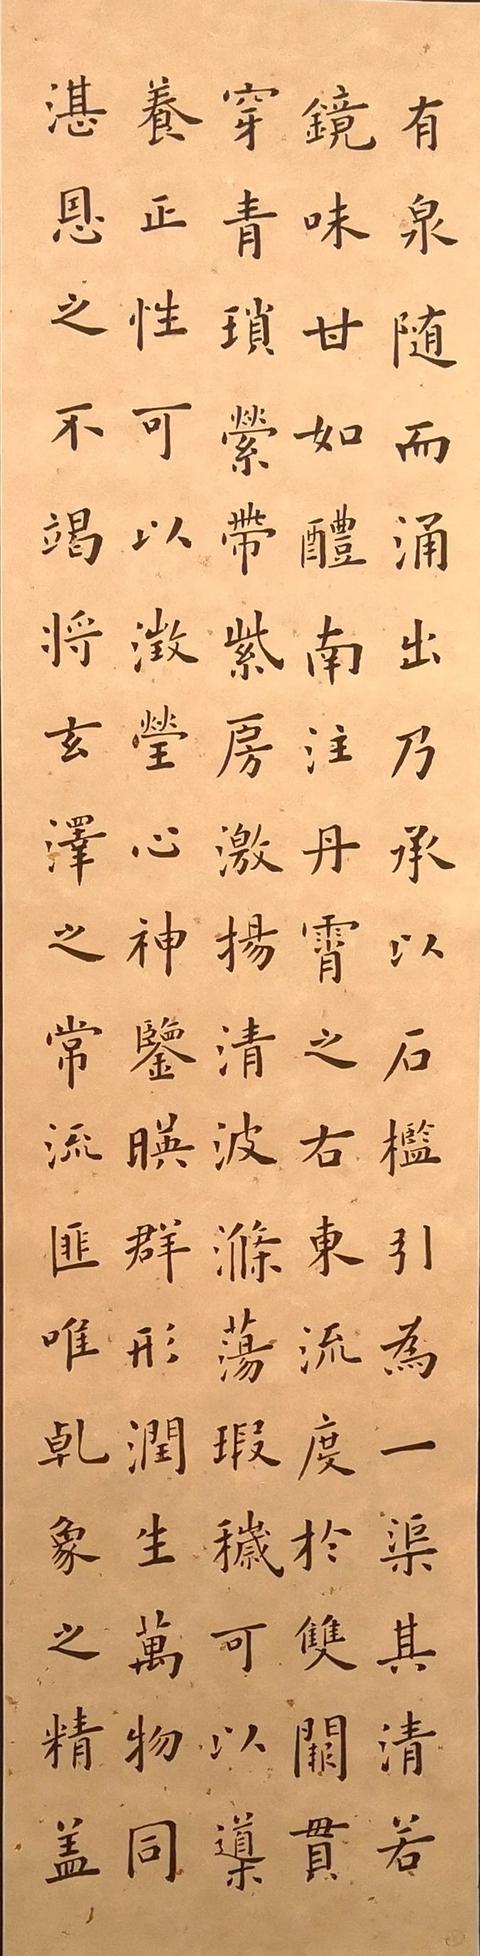 有泉随而涌出乃承以石檻引為一渠其清若
鏡味甘如醴南注丹霄之右東流度於雙闕貫
穿青瑣縈帶紫房激揚清波滌蕩瑕穢可以導
養正性可以澂瑩心神鑒暎群形潤生萬物同
湛恩之不竭将玄澤之常流匪唯乹象之精盖